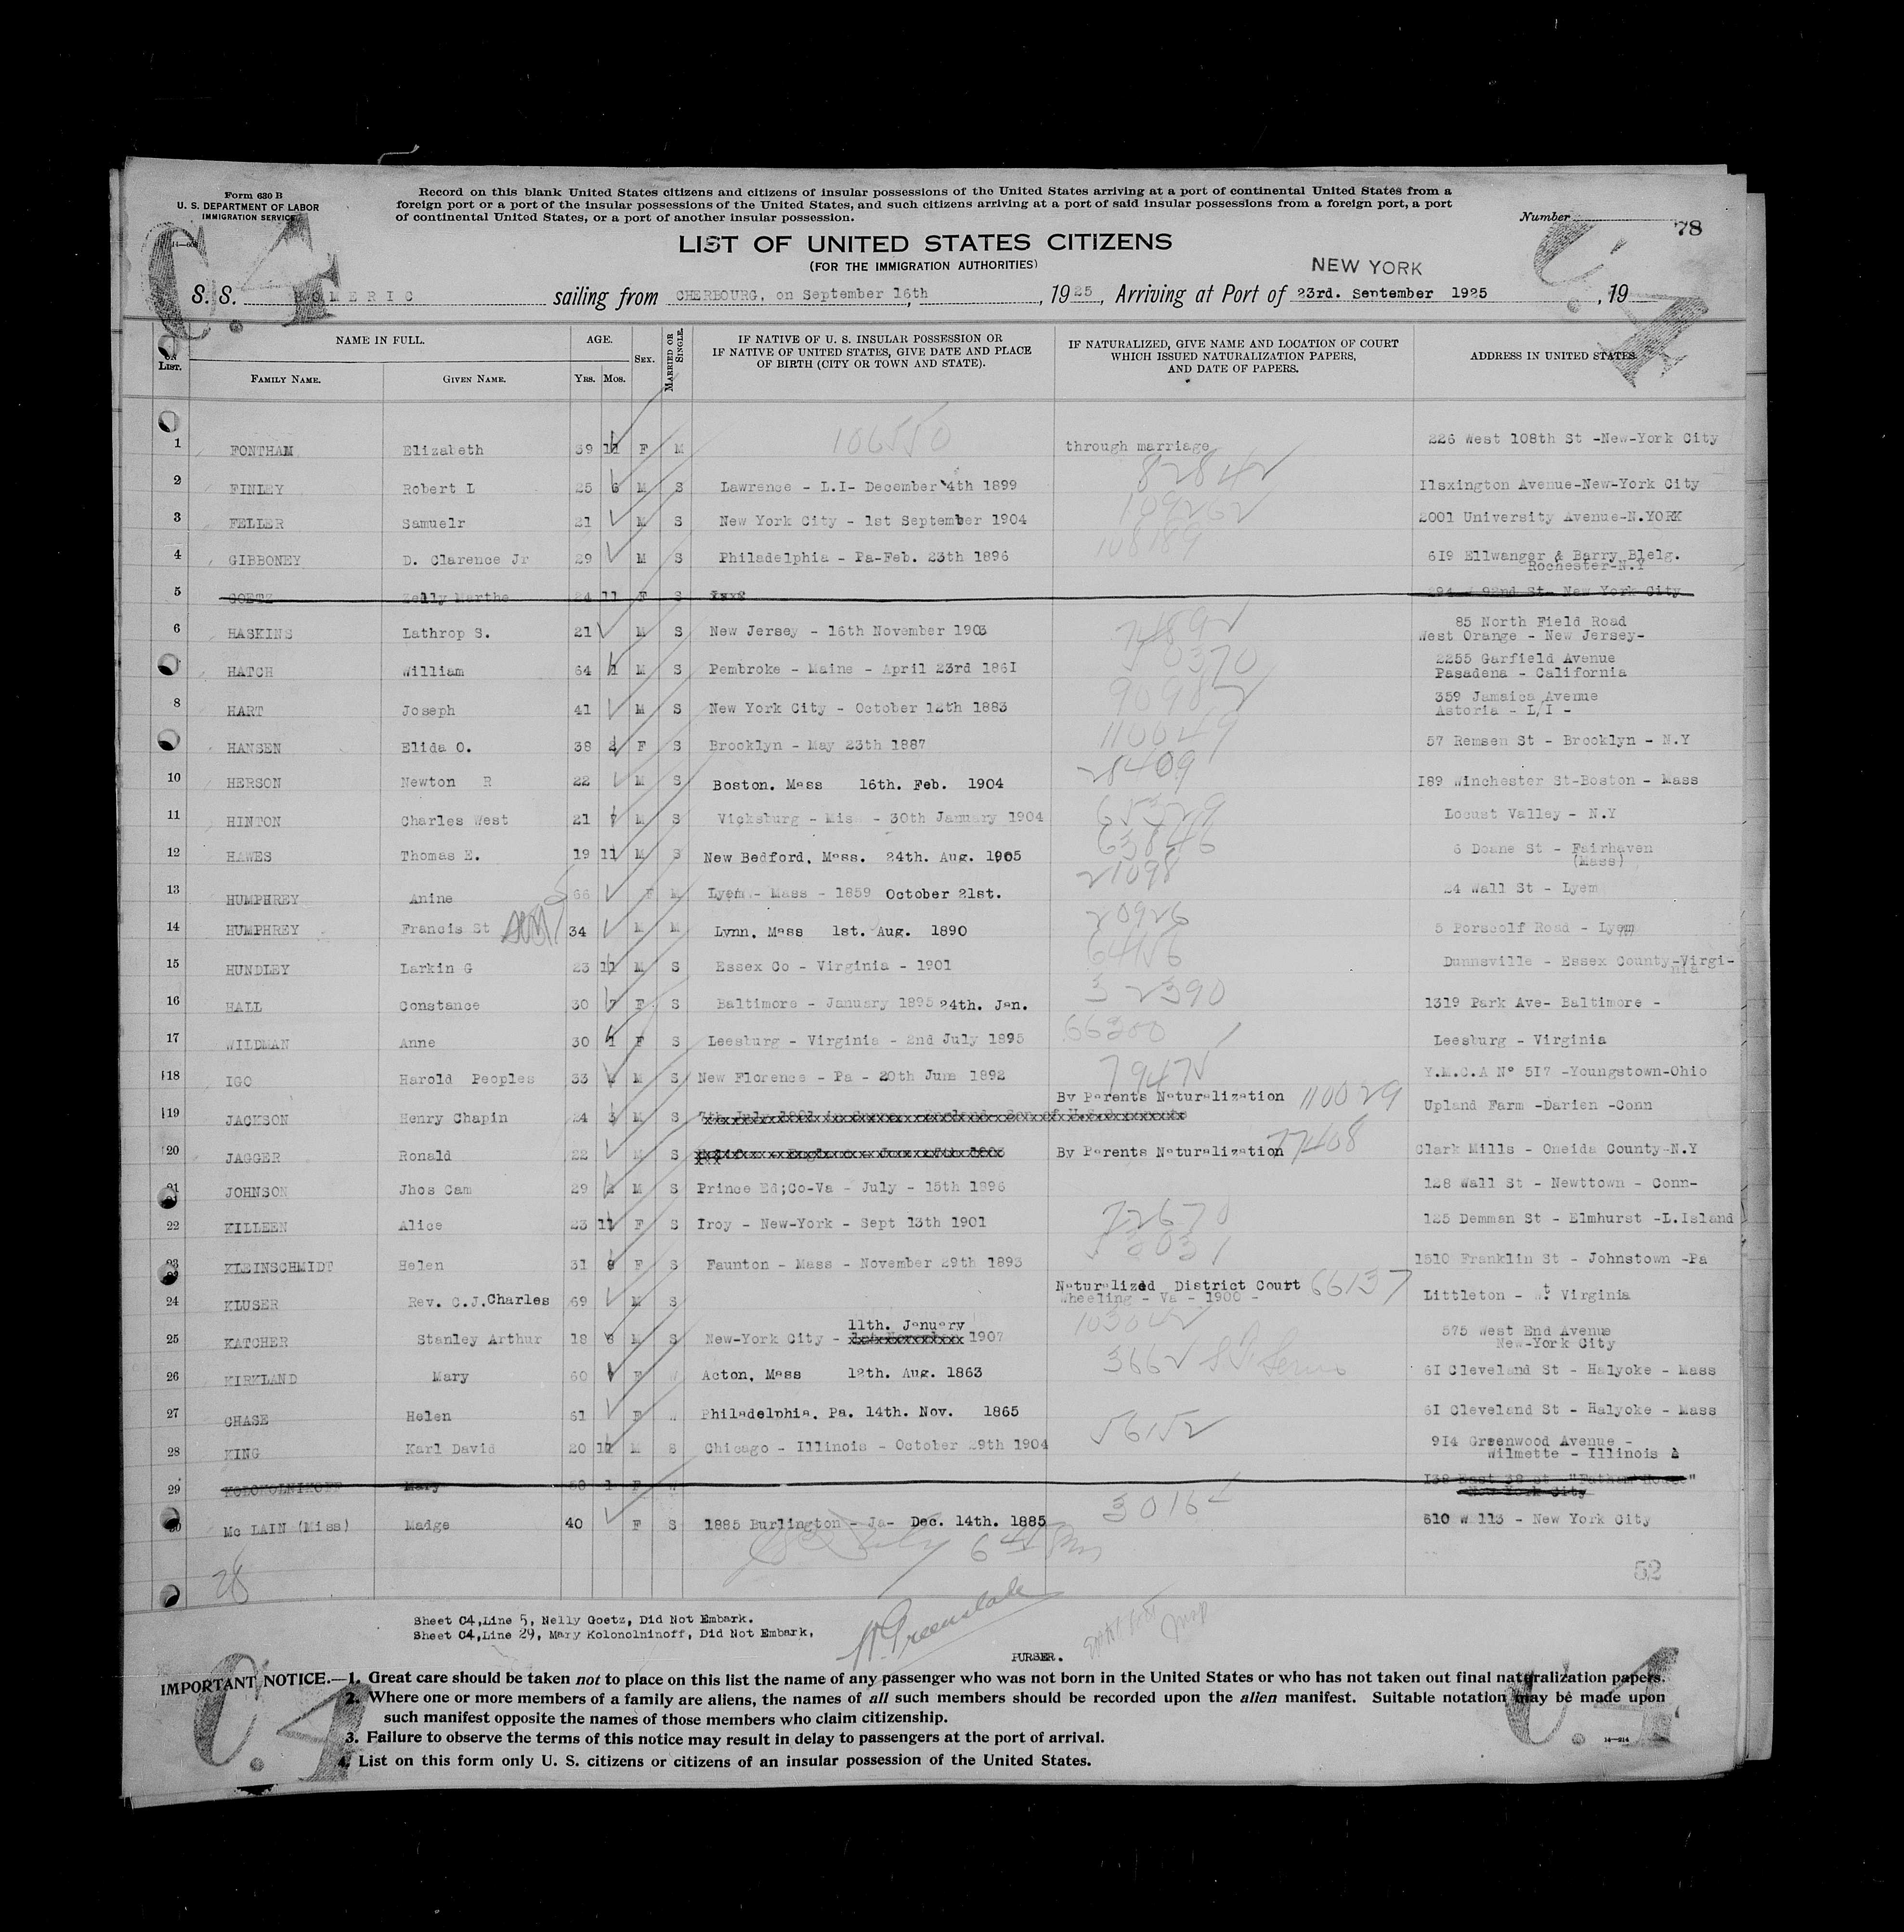 Form 630 B
U. S. DEPARTMENT OF LABOR
IMMIGRATION SERVICE
Record on this blank United States citizens and citizens of insular possessions of the United States arriving at a port of continental United States from a
foreign port or a port of the insular possessions of the United States, and such citizens arriving at a port of said insular possessions from a foreign port, a port
of continental United States, or a port of another insular possession.
Number 78
C.4 C.4
LIST OF UNITED STATES CITIZENS
(FOR THE IMMIGRATION AUTHORITIES)
NEW YORK
S. S. HOMERIC sailing from CHERBOURG, on September 16th, 1925, Arriving at Port of 23rd. September 1925, 19
LIST. NAME IN FULL. FAMILY NAME. GIVEN NAME. AGE. YRS. MOS. SEX. MARRIED OR SINGLE. IF NATIVE OF U. S. INSULAR POSSESSION OR IF NATIVE OF UNITED STATES, GIVE DATE AND PLACE OF BIRTH (CITY OR TOWN AND STATE). IF NATURALIZED, GIVE NAME AND LOCATION OF COURT WHICH ISSUED NATURALIZATION PAPERS, AND DATE OF PAPERS. ADDRESS IN UNITED STATES.
1 FONTHAM Elizabeth 39 11 F M 106550 through marriage 226 West 108th St -New-York City
2 FINLEY Robert L 25 6 M S Lawrence - L.I- December 4th 1899 82842 Ilsxington Avenue-New-York City
3 FELLER Samuelr 21 M S New York City - 1st September 1904 109262 2001 University Avenue-N.YORK
4 GIBBONEY D. Clarence Jr 29 M S Philadelphia - Pa-Feb. 23th 1896 108189 619 Ellwanger & Barry Blelg.
Rochester-N.Y
5 GOETZ Marthe 24 11 F S 92nd St- New York City
6 HASKINS Lathrop S. 21 M S New Jersey - 16th November 1903 85 North Field Road
West Orange - New Jersey-
HATCH William 64 M S Pembroke - Maine - April 23rd 1861 50370 2255 Garfield Avenue
Pasadena - California
8 HART Joseph 41 M S New York City - October 12th 1883 359 Jamaica Avenue
Astoria - L/I -
HANSEN Elida O. 38 2 F S Brooklyn - May 23th 1887 110049 57 Remsen St - Brooklyn - N.Y
10 HERSON Newton R 22 M S Boston. Mass 16th. Feb. 1904 28409 I89 Winchester St-Boston - Mass
11 HINTON Charles West 21 7 M S Vicksburg - Mis - 30th January 1904 65329 Locust Valley - N.Y
12 HAWES Thomas E. 19 11 M S New Bedford, Mass. 24th. Aug. 1905 63846 6 Doane St - Fairhaven
(Mass)
13 HUMPHREY Anine 66 F M Lyem.- Mass - 1859 October 21st. 21098 24 Wall St - Lyem
14 HUMPHREY Francis St 34 M M Lynn. Mass 1st. Aug. 1890 20926 5 Porscolf Road - Lyem
15 HUNDLEY Larkin G 23 11 M S Essex Co - Virginia - 1901 64156 Dunnsville - Essex County-Virgi-
nia
16 HALL Constance 30 7 F S Baltimore - January 1895 24th. Jan. 32390 1319 Park Ave- Baltimore -
17 WILDMAN Anne 30 F S Leesburg - Virginia - 2nd July 1895 66300 Leesburg - Virginia
18 IGO Harold Peoples 33 M S New Florence - Pa - 20th June 1892 79475 Y.M.C.A N° 5I7 -Youngstown-Ohio
19 JACKSON Henry Chapin 24 3 M S By Parents Naturalization 110029 Upland Farm -Darien -Conn
20 JAGGER Ronald 22 M S By Parents Naturalization 77408 Clark Mills - Oneida County-N.Y
21 JOHNSON Jhos Cam 29 2 M S Prince Ed;Co-Va - July - 15th 1896 128 Wall St - Newttown - Conn-
22 KILLEEN Alice 23 11 F S Iroy - New-York - Sept 13th 1901 72670 125 Demman St - Elmhurst -L.Island
23 KLEINSCHMIDT Helen 31 9 F S Faunton - Mass - November 29th 1893 1510 Franklin St - Johnstown -Pa
24 KLUSER Rev. C.J.Charles 69 M S Naturalized District Court 66137
Wheeling - Va - 1900 - Littleton - Wt. Virginia
25 KATCHER Stanley Arthur 18 8 M S New-York City - 11th. January 1907 575 West End Avenue
New-York City
26 KIRKLAND Mary 60 F W Acton, Mass 12th. Aug. 1863 3662 6I Cleveland St - Halyoke - Mass
27 CHASE Helen 61 F W Philadelphia. Pa. 14th. Nov. 1865 6I Cleveland St - Halyoke - Mass
28 KING Karl David 20 11 M S Chicago - Illinois - October 29th 1904 56152 914 Greenwood Avenue -
Wilmette - Illinois
29 KOLOKOLNIKOFF Mary 58 1 F W I38 East 38 st
New York City
30 Mc LAIN (Miss) Madge 40 F S 1885 Burlington - Ja- Dec. 14th. 1885 610 W 113 - New York City
28
52
Sheet C4,Line 5, Nelly Goetz, Did Not Embark.
Sheet C4,Line 29, Mary Kolonolninoff, Did Not Embark,
PURSER.
IMPORTANT NOTICE.—1. Great care should be taken not to place on this list the name of any passenger who was not born in the United States or who has not taken out final naturalization papers.
2. Where one or more members of a family are aliens, the names of all such members should be recorded upon the alien manifest. Suitable notation may be made upon
such manifest opposite the names of those members who claim citizenship.
3. Failure to observe the terms of this notice may result in delay to passengers at the port of arrival.
4. List on this form only U. S. citizens or citizens of an insular possession of the United States.
C.4 C.4
14—214